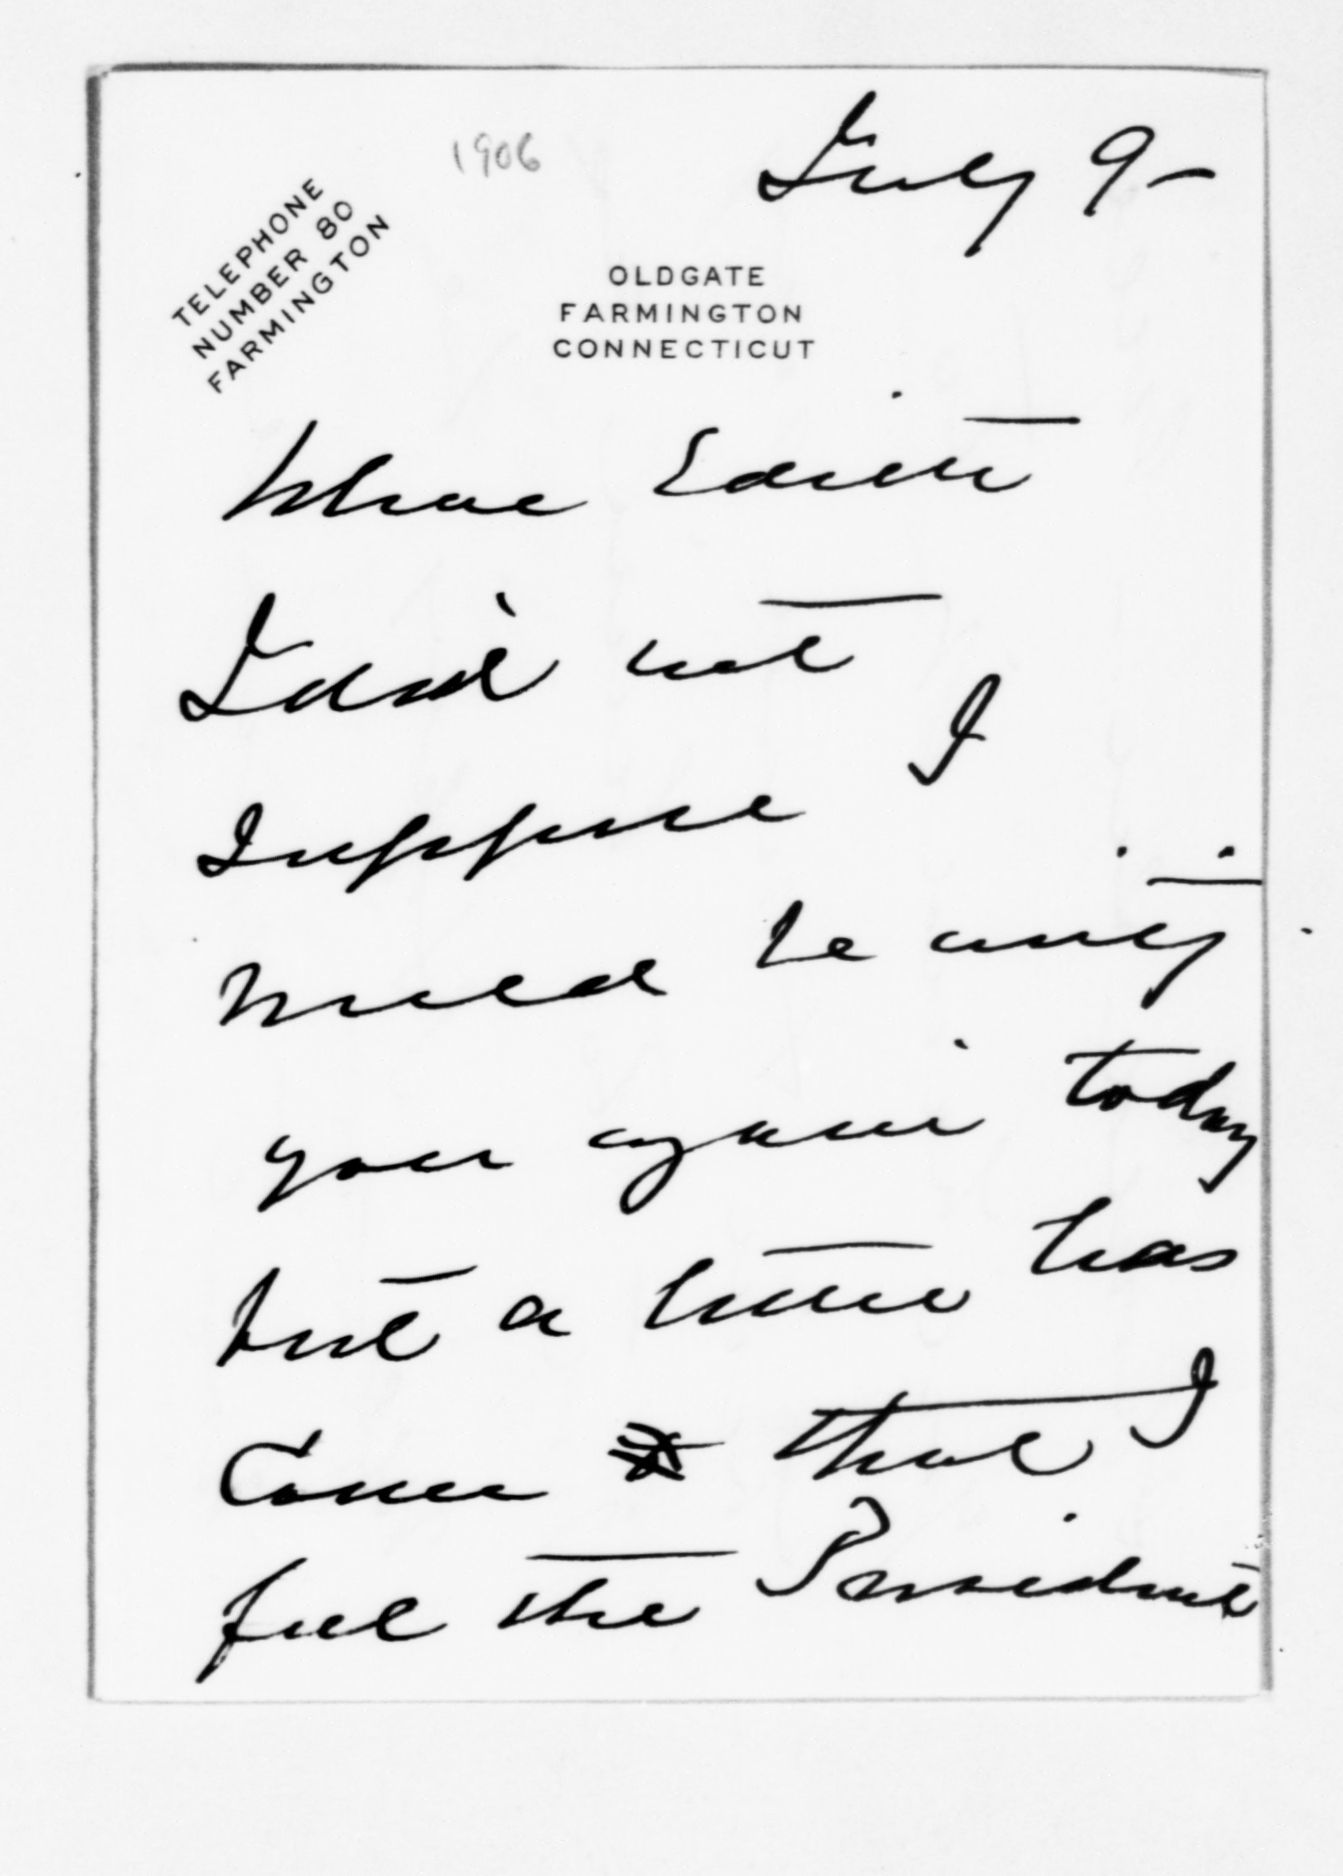 1906
July 9 -
TELEPHONE
NUMBER 80
FARMINGTON
OLDGATE
FARMINGTON
CONNECTICUT
Edith
I did not
suppose I
would be writing
you again today
but a letter has
come that I
feel the President